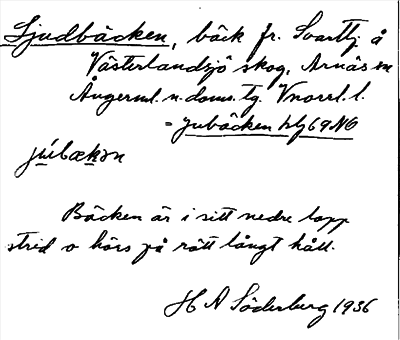 Ljudbäcken, bäck fr. Svarttj. å
Västerlandsjö skog, Arnäs sn
Ångerml. n. doms. tg. Vnorrl. l.
= Jubäcken hlj 69 NO
Bäcken är i sitt nedre lopp
strid o hörs på rätt långt håll.
H A Söderberg 1936